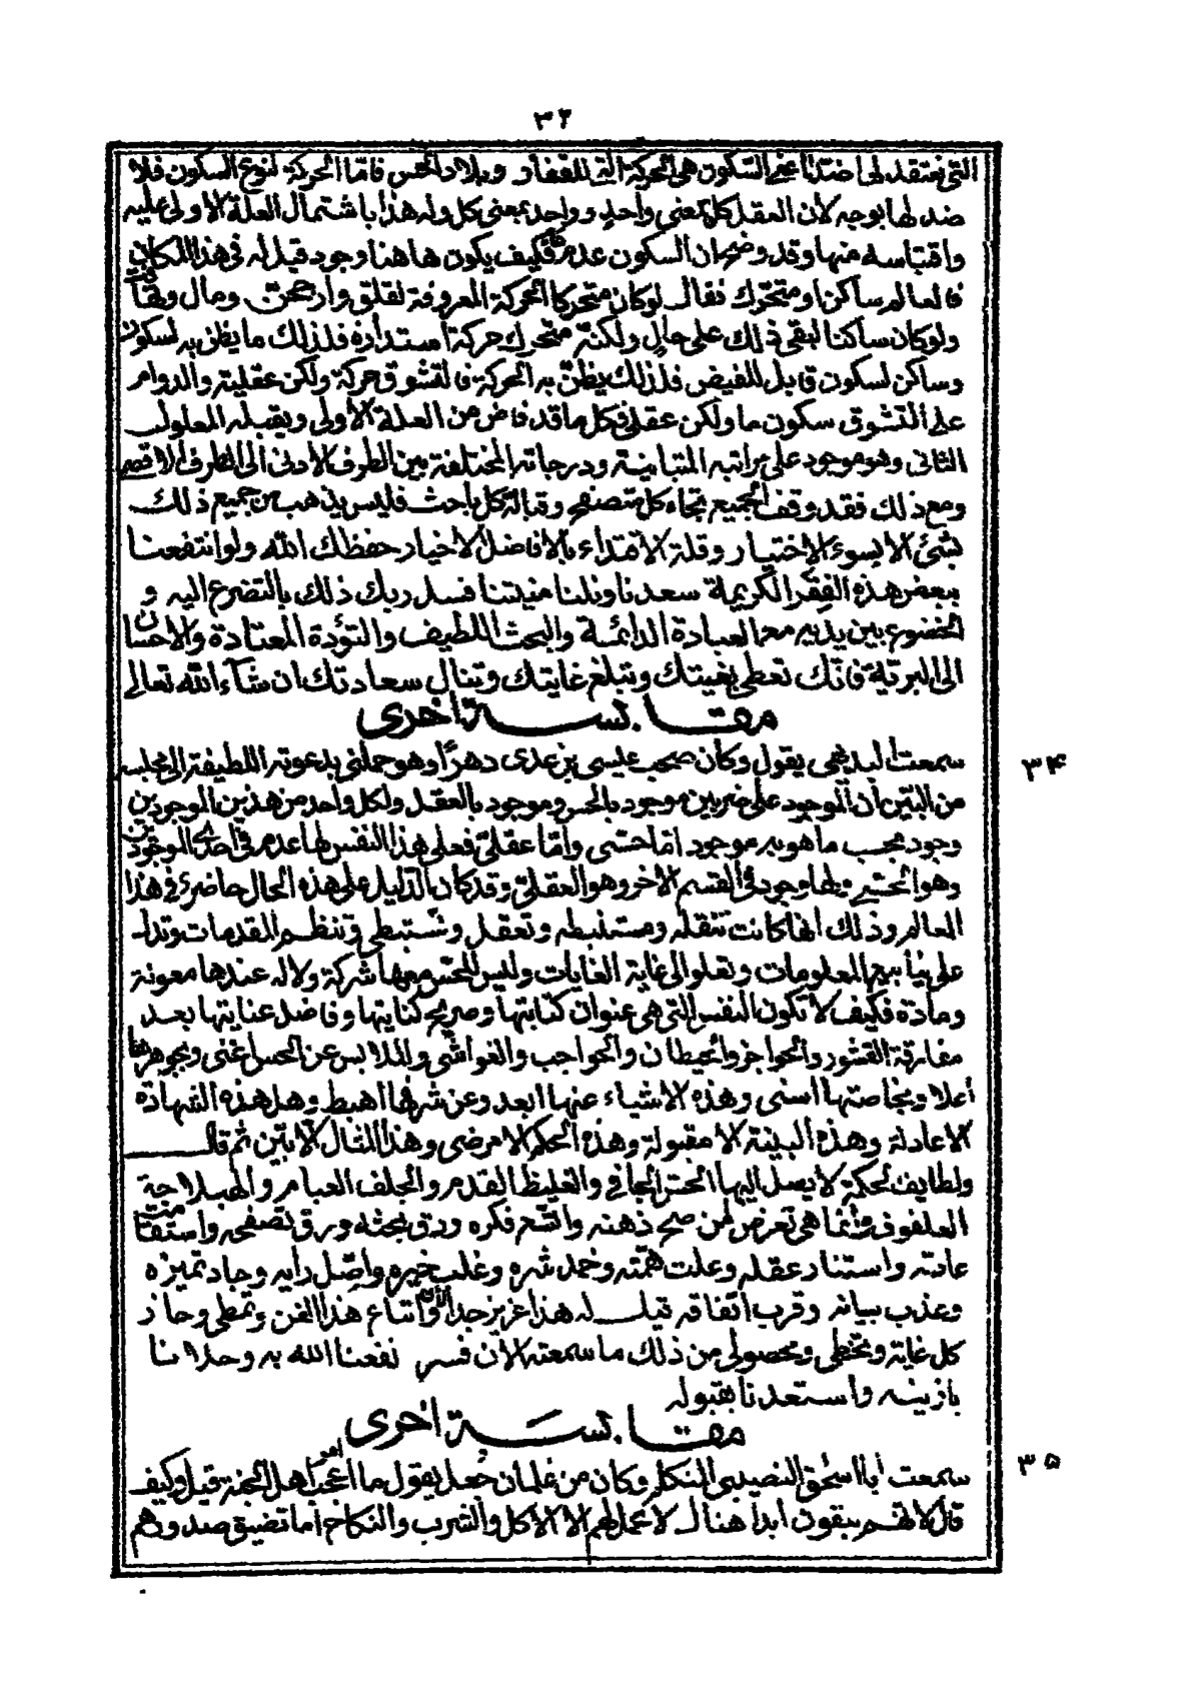 ٣٢
التى نعتقد لها ضدا اعنى السكون هى الحركة التى للقفار وبلاد الحس فاما الحركة لنوع السكون فلا
ضد لها بوجه لان العقد كل بمعنى واحد وواحد بمعنى كل وله هذا باشتمال العلة الاولى عليه
واقتباسه منها وقد وضح ان السكون عدم فكيف يكون هاهنا وجود قيل له فى هذا المكان
فالعالم ساكن او متحرك فقال لو كان متحركا الحركة المعروفة لقلق وارجحن ومال وتهافت
ولو كان ساكنا لبقى ذلك على حال ولكنه متحرك حركة استدارة فلذلك ما يظن به لسكون
وساكن لسكون قابل للفيض فلذلك يظن به الحركة فالتشوق حركة ولكن عقلية والدوام
على التشوق سكون ما ولكن عقلى فكل ما قد فاض من العلة الاولى ويقبله المعلول
الثانى وهو موجود على مراتبه المتباينة ودرجاته المختلفة بين الطرف الادنى الى الطرف الاقصى
ومع ذلك فقد وقف الجميع تجاه كل متصفح وقبالة كل باحث فليس يذهب من جميع ذلك
شئ الا بسوء الاختيار وقلة الاقتداء بالافاضل الاخيار حفظك الله ولو انتفعنا
ببعض هذه الفقر الكريمة سعدنا ونلنا منيتنا فسل ربك ذلك بالتضرع اليه و
الخضوع بين يديه مع العبادة الدائمة والبحث اللطيف والتؤدة المعتادة والاحسان
الى البرية فانك تعطى بغيتك وتبلغ غايتك وتنال سعادتك ان شاء الله تعالى
مقابسة اخرى
٣٤
سمعت البديهى يقول وكان صحب عيسى بن عدى دهرا وهو حملنى بدعوته اللطيفة الى مجلسه
من البين ان الموجود على ضربين موجود بالحس وموجود بالعقل ولكل واحد من هذين الموجودين
وجود بحسب ما هو به موجود اما حسى واما عقلى فعلى هذا النفس لها عدم فى احد الموجودين
وهو الحسى ولها وجود فى القسم الاخر وهو العقلى وقد كان الدليل على هذه الحال حاضرا فى هذا
العالم وذلك انها كانت تنقله ومستنبطه وتعقل وتستبطى وتنظم المقدمات وتدل
على ينابيع المعلومات وتعلو الى غاية الغايات وليس للحس معها شركة ولا له عندها معونة
ومادة فكيف لا تكون النفس التى هى عنوان كتابتها وصريح كنايتها وفاضل عنايتها بعد
مفارقة القشور والحواجز والحيطان والحواجب والغواشى والملابس عن الحس اغنى وبجوهرها
أعلا وبخاصتها اسنى وهذه الاشياء عنها ابعد وعن شرفها اهبط وهل هذه الشهادة
الا عادلة وهذه البينة الا مقبولة وهذه الحكم الا مرضى وهذا المثال الا بين ثم قال
ولطايف الحكمة لا يصل اليها الحس الجافى والغليظ الفدم والجلف العبام والهلباجة
العلفوف وانما هى تعرض لمن صح ذهنه واتسع فكره ودق بحثه ورق تصفحه واستقامت
عادته واستنار عقله وعلت همته وخمد شره وغلب خيره واصل رايه وجاد تميزه
وعذب بيانه وقرب اتفاقه قيل له هذا عزيز جدا وانتاع هذا الفن وتمطى وحاز
كل غاية وتخطى ومحصولى من ذلك ما سمعته الان فسر نفعنا الله به وحلانا
بازينه واستعدنا بقبوله
مقابسة اخرى
٣٥
سمعت أبا اسحق النصيبى المتكلم وكان من غلمان جعل يقول ما اعجب امر اهل الجنة قيل وكيف
قال لانهم يبقون ابدا هناك لا عمل لهم الا الاكل والشرب والنكاح اما تضيق صدورهم